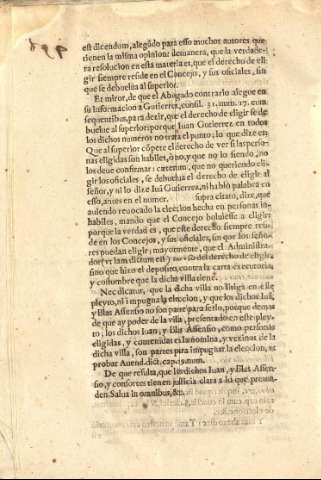 est dicendum, alegãdo para esso muchos autores que
tienen la misma opinion: demanera, que la verdade-
ra resolucion en esta materia es, que el derecho de ele-
gir siempre reside en el Concejo, y sus oficiales, sin
que se debuelua al superior.
Et miror, de que el Abogado contrario alegue en
su informacion a Gutierrez, consil. 31. num. 17. cum
sequentibus, para dezir, que el derecho de eligir se de-
buelue al superior; porque Iuan Gutierrez en todos
los dichos numeros no trata el punto, lo que dize en
Que al superior cõpete el derecho de ver si las perso-
nas eligidas son habiles, ò no, y que no lo siendo, no
los deue confirmar: cæterum, que no queriendo eli-
gir los oficiales, se debuelua el derecho de eligir al
señor, y ni lo dize Iuã Gutierrez, ni habló palabra en
esso, antes en el numer. supra citato, dize, que
auiendo reuocado la eleccion hecha en personas in-
habiles, mando que el Concejo boluiesse a eligir,
porque la verdad es, que este derecho siempre resi-
de en los Concejos, y sus oficiales, sin que los seño-
res puedan eligir, mayormente, que el Administra-
dor (vt iam dictum est) no usò del derecho de eligir,
sino que hizo el deposito, contra la carta executoria,
y costumbre que la dicha villa tiene.
Nec dicatur, que la dicha villa no litiga en este
pleyto, ni impugna la eleccion, y que los dichos Iuã,
y Blas Assenso no son parte para serlo, porque demas
de que ay poder de la villa, presentado en este pley-
to, los dichos Iuan, y Blas Assenso, como personas
eligidas, y contenidas en la nomina, y vezinos de la
dicha villa, son partes para impugnar la eleccion, vt
probat Auend. dict. cap. 19. num.
De que resulta, que los dichos Iuan, y Blas Assen-
so, y consortes tienen justicia clara a lo que preten-
den. Salua in omnibus, &c.